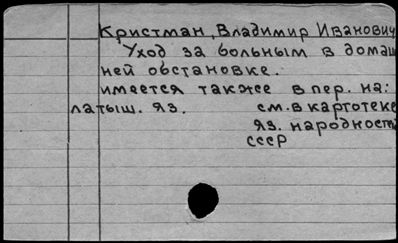 Кристман, Владимир Иванович
Уход за больным в домаш
ней обстановке.
имеется также в пер. на:
латыш. яз. см. в картотеке
яз. народносте
СССР